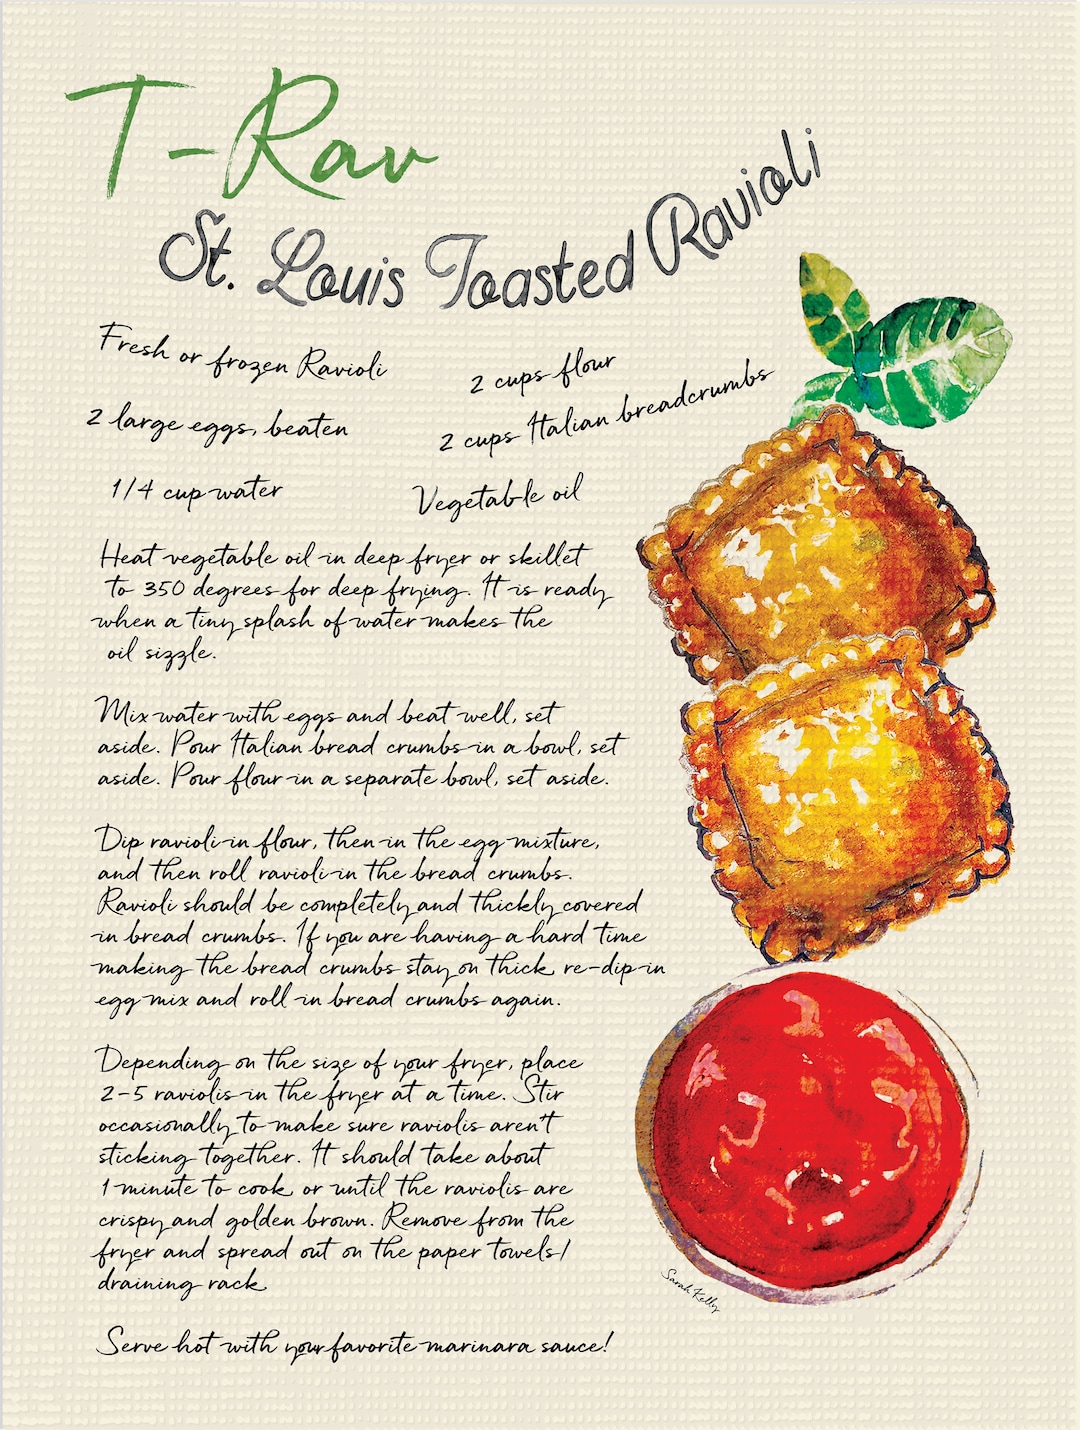 T-Rav
St. Louis Toasted Ravioli
Fresh or frozen Ravioli
2 large eggs, beaten
1/4 cup water
2 cups flour
2 cups Italian breadcrumbs
Vegetable oil
Heat vegetable oil in deep fryer or skillet
to 350 degrees for deep frying. It is ready
when a tiny splash of water makes the
oil sizzle.
Mix water with eggs and beat well, set
aside. Pour Italian bread crumbs in a bowl, set
aside. Pour flour in a separate bowl, set aside.
Dip ravioli in flour, then in the egg mixture,
and then roll ravioli in the bread crumbs.
Ravioli should be completely and thickly covered
in bread crumbs. If you are having a hard time
making the bread crumbs stay on thick re-dip in
egg mix and roll in bread crumbs again.
Depending on the size of your fryer, place
2-5 raviolis in the fryer at a time. Stir
occasionally to make sure raviolis aren't
sticking together. It should take about
1 minute to cook or until the raviolis are
crispy and golden brown. Remove from the
fryer and spread out on the paper towels/
draining rack
Serve hot with your favorite marinara sauce!
Sarah Kelly